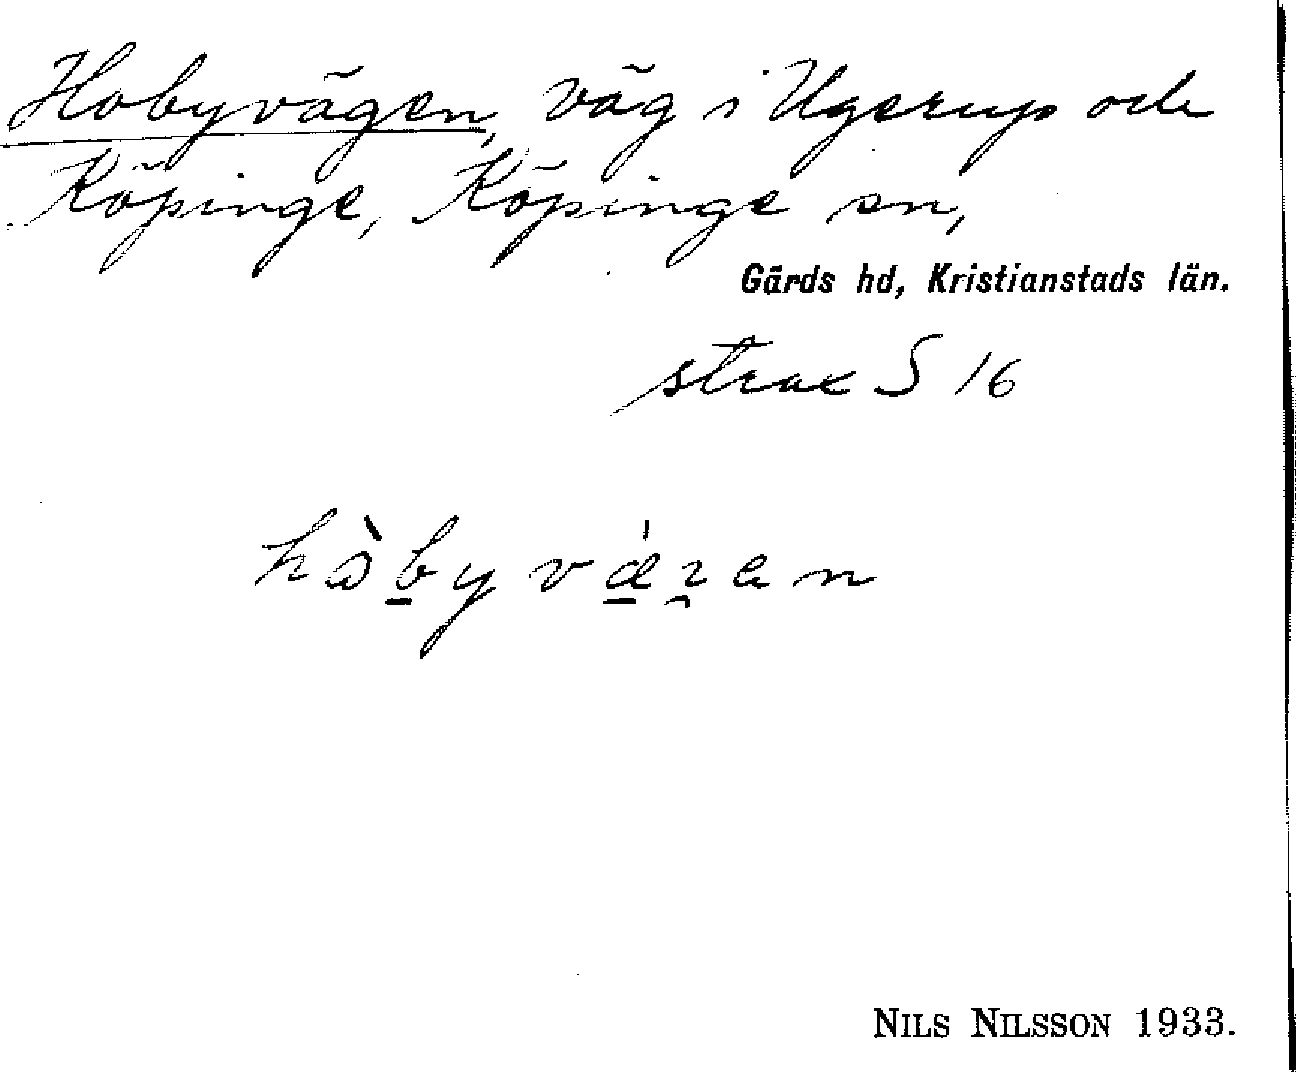 Hobyvägen, väg i Ugerup och
Köpinge, Köpinge sn,
Gärds hd, Kristianstads län.
strax S 16
hòby vǽɿen
NILS NILSSON 1933.